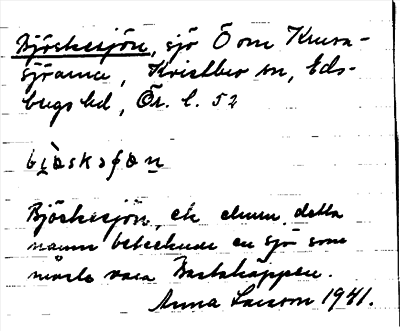 Björkesjön, sjö Ö om Krusa-
sjöarna, Kvistbro sn, Eds-
bergs hd, Ör. l. 52
Björkesjön, ek. detta
namn betecknar en sjö som
måste vara Bastakärpen.
Anna Larsson 1941.